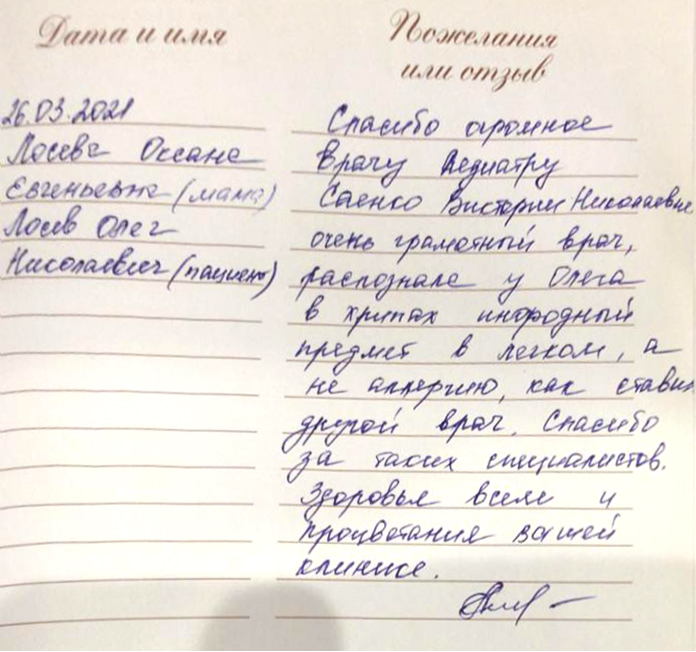 Дата и имя
26.03.2021
Лосева Оксана
Евгеньевна (мама)
Лосев Олег
Николаевич (пациент)
Пожелания
или отзыв
Спасибо огромное
врачу педиатру
Саенко Виктории Николаевне,
очень грамотный врач,
распознала у Олега
в хрипах инородный
предмет в легком, а
не аллергию, как ставил
другой врач. Спасибо
за таких специалистов.
Здоровья всем и
процветания вашей
клинике.